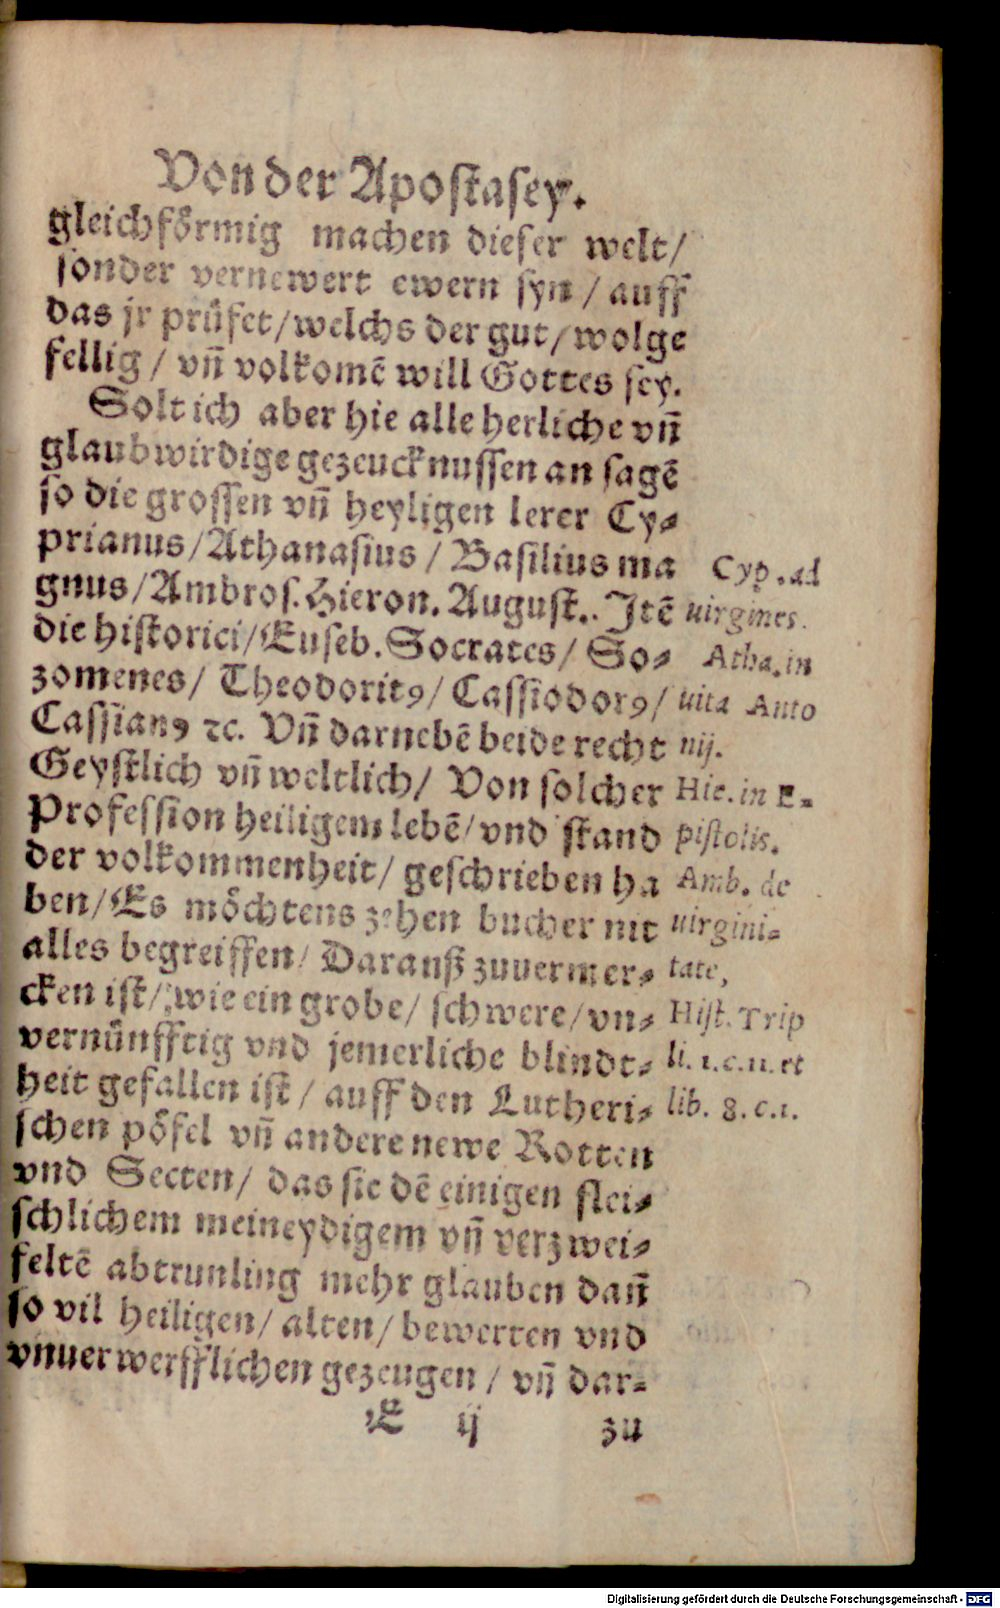 Von der Apostasey.
gleichförmig machen dieser welt/
sonder vernewert ewern syn / auff
das jr prüfet/welchs der gut/wolge
fellig / vñ volkomē will Gottes sey.
Solt ich aber hie alle herliche vñ
glaubwirdige gezeucknussen an sagē
so die grossen vñ heyligen lerer Cy⸗
prianus/Athanasius / Basilius ma
gnus/Ambros. Hieron. August.. Itē
die historici/Euseb. Socrates/ So⸗
zomenes/ Theodoritꝰ/ Cassiodorꝰ/
Cassianꝰ ⁊c. Vñ darnebē beide recht
Geystlich vñ weltlich/ Von solcher
Profession heiligem lebē/ vnd stand
der volkommenheit/ geschrieben ha
ben/ Es möchtens zehen bucher nit
alles begreiffen/ Darauß zuuermer⸗
cken ist/ wie ein grobe/ schwere/ vn⸗
vernünfftig vnd jemerliche blindt⸗
heit gefallen ist / auff den Lutheri⸗
schen pöfel vñ andere newe Rotten
vnd Secten/ das sie dē einigen flei⸗
schlichem meineydigem vñ verzwei⸗
feltē abtrunling mehr glauben dañ
so vil heiligen/ alten/ bewerten vnd
vnuerwerfflichen gezeugen / vñ dar⸗
E ij zu
Cyp. ad
uirgines.
Atha. in
uita Anto
nij.
Hie. in E⸗
pistolis.
Amb. de
uirgini⸗
tate,
Hist. Trip
li. 1. c. 11. et
lib. 8. c. 1.
Digitalisierung gefördert durch die Deutsche Forschungsgemeinschaft - DFG